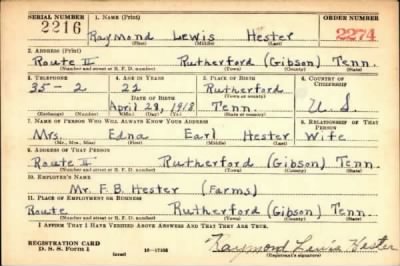 SERIAL NUMBER 1. NAME (Print) ORDER NUMBER
2216 Raymond Lewis Hester 2274
(First) (Middle) (Last)
2. ADDRESS (Print)
Route II Rutherford (Gibson) Tenn.
(Number and street or R. F. D. number) (Town) (County) (State)
3. TELEPHONE 4. AGE IN YEARS 5. PLACE OF BIRTH 6. COUNTRY OF CITIZENSHIP
35-2 22 Rutherford
DATE OF BIRTH (Town or county)
April 28, 1918 Tenn. U. S.
(Exchange) (Number) (Mo.) (Day) (Yr.) (State or country)
7. NAME OF PERSON WHO WILL ALWAYS KNOW YOUR ADDRESS 8. RELATIONSHIP OF THAT PERSON
Mrs. Edna Earl Hester Wife
(Mr., Mrs., Miss) (First) (Middle) (Last)
9. ADDRESS OF THAT PERSON
Route II Rutherford (Gibson) Tenn.
(Number and street or R. F. D. number) (Town) (County) (State)
10. EMPLOYER'S NAME
Mr. F. B. Hester (Farms)
11. PLACE OF EMPLOYMENT OR BUSINESS
Route Rutherford (Gibson) Tenn.
(Number and street or R. F. D. number) (Town) (County) (State)
I AFFIRM THAT I HAVE VERIFIED ABOVE ANSWERS AND THAT THEY ARE TRUE.
REGISTRATION CARD
D. S. S. Form 1 (over) Raymond Lewis Hester
(Registrant's signature)